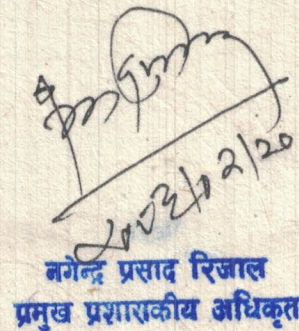 २०७३/०२/२०
नगेन्द्र प्रसाद रिजाल
प्रमुख प्रशासकीय अधिकृत